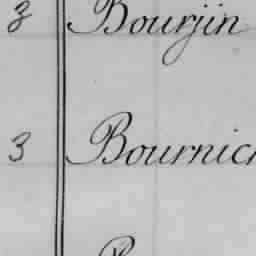 3 Bourjin
3 Bournic